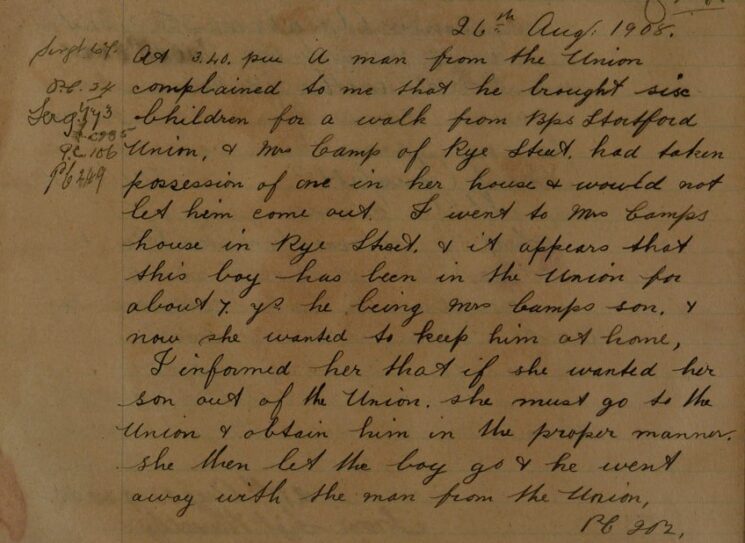 26th Aug: 1908.
Sergt
At 3.40. pm A man from the Union
P.C. 24
complained to me that he brought six
Sergt
children for a walk from Bps Stortford
P.C. 106
Union, & Mrs Camp of Rye Street. had taken
PC 249
possession of one in her house & would not
let him come out. I went to Mrs Camps
house in Rye Street. & it appears that
this boy has been in the Union for
about 7. ys. he being Mrs Camps son. &
now she wanted to keep him at home,
I informed her that if she wanted her
son out of the Union. she must go to the
Union & obtain him in the proper manner.
she then let the boy go & he went
away with the man from the Union,
PC 202.